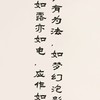 有为法.如梦幻泡
如露亦如电.应作如